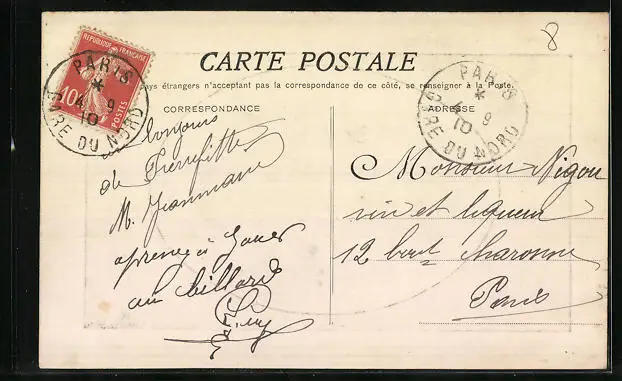 8
REPUBLIQUE FRANÇAISE
10c
POSTES
PARIS
4 9
10
GARE DU NORD
CARTE POSTALE
pays étrangers n'acceptant pas la correspondance de ce côté, se renseigner à la Poste.
CORRESPONDANCE
ADRESSE
PARIS
4 9
10
GARE DU NORD
Bonjours
de Pierrefitte
M. Jeanmaire
aprener à jouer
au billard
Monsieur Vigou
vin et liqueur
12 boul Charonne
Paris